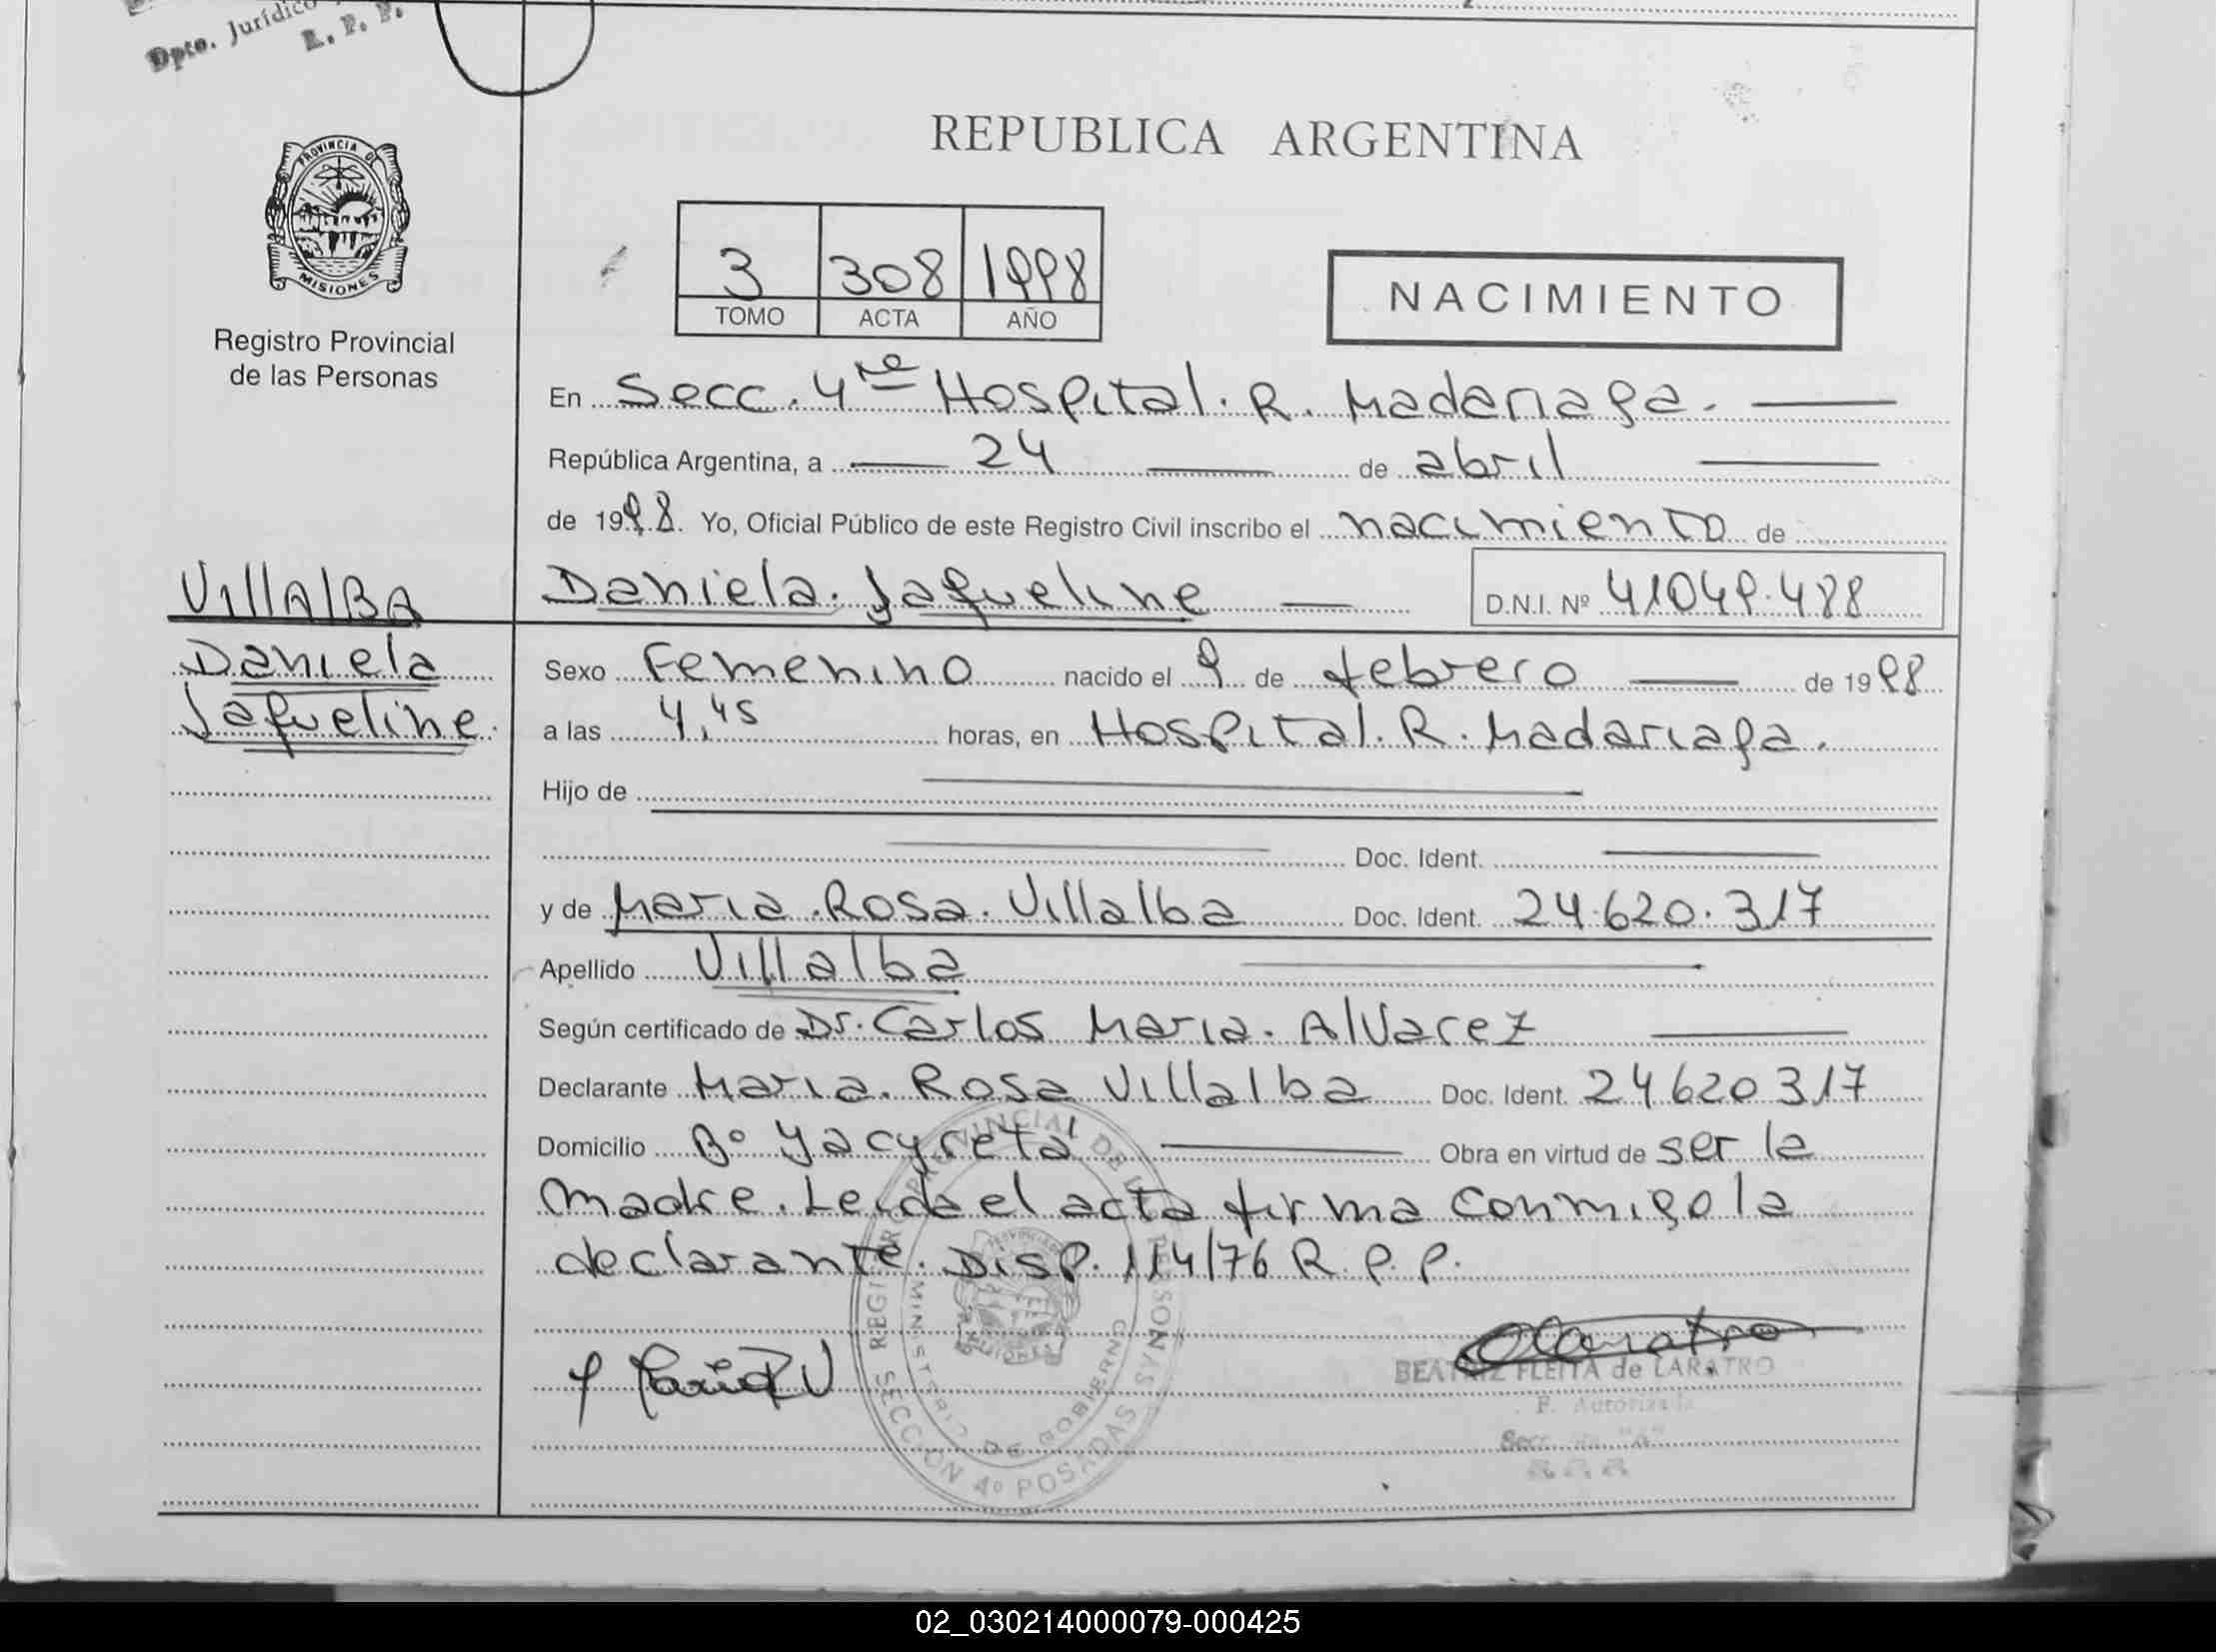 Dpto. Jurídico
R. P. P.
PROVINCIA DE
MISIONES
Registro Provincial
de las Personas
REPUBLICA ARGENTINA
3 308 1998
TOMO ACTA AÑO
NACIMIENTO
En Secc. 4ta Hospital. R. Madariaga.
República Argentina, a 24 de abril
de 1998. Yo, Oficial Público de este Registro Civil inscribo el nacimiento de
VillAlBA
Daniela
Jaqueline.
Daniela. Jaqueline D.N.I. Nº 41049.488
Sexo Femenino nacido el 9 de febrero de 1998
a las 4,45 horas, en Hospital. R. Madariaga.
Hijo de
Doc. Ident.
y de Maria. Rosa. Villalba Doc. Ident. 24.620.317
Apellido Villalba
Según certificado de Dr. Carlos Maria. Alvarez
Declarante Maria. Rosa Villalba Doc. Ident. 24620317
Domicilio Bº Yacyreta Obra en virtud de ser la
madre. Leida el acta firma conmigo la
declarante. Disp. 114/76 R. P. P.
REGISTRO PROVINCIAL DE LAS PERSONAS
MINISTERIO DE GOBIERNO
SECCION 4º POSADAS
Maria R V
BEATRIZ FLEITA de LARATRO
F. Autorizada
02_030214000079-000425